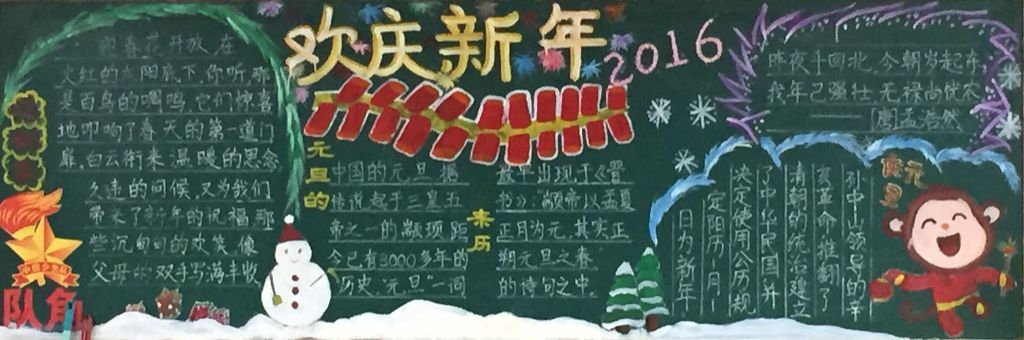 欢庆新年
2016
迎春花开放,在
火红的太阳底下,你听,那
是百鸟的鸣,它们惊喜
地叩响了春天的第一道门
扉,白云衔来温暖的思念
久违的问候,又为我们
带来了新年的祝福,那
些沉甸甸的欢笑,像
父母的双手写满丰收
队角
元旦的
来历
中国的元旦,据
传说起于三皇五
帝之一的颛顼,距
今已有3000多年的
历史,"元旦"一词
最早出现于《晋
书》:"颛帝以孟夏
正月为元,其实正
朔元旦之春
的诗句之中,
昨夜斗回北,今朝岁起东
我年已强壮,无禄尚忧农
——[唐]孟浩然
庆元旦
孙中山领导的辛
亥革命,推翻了
清朝的统治,建立
了中华民国,并
决定使用公历,规
定阳历一月一
日为新年